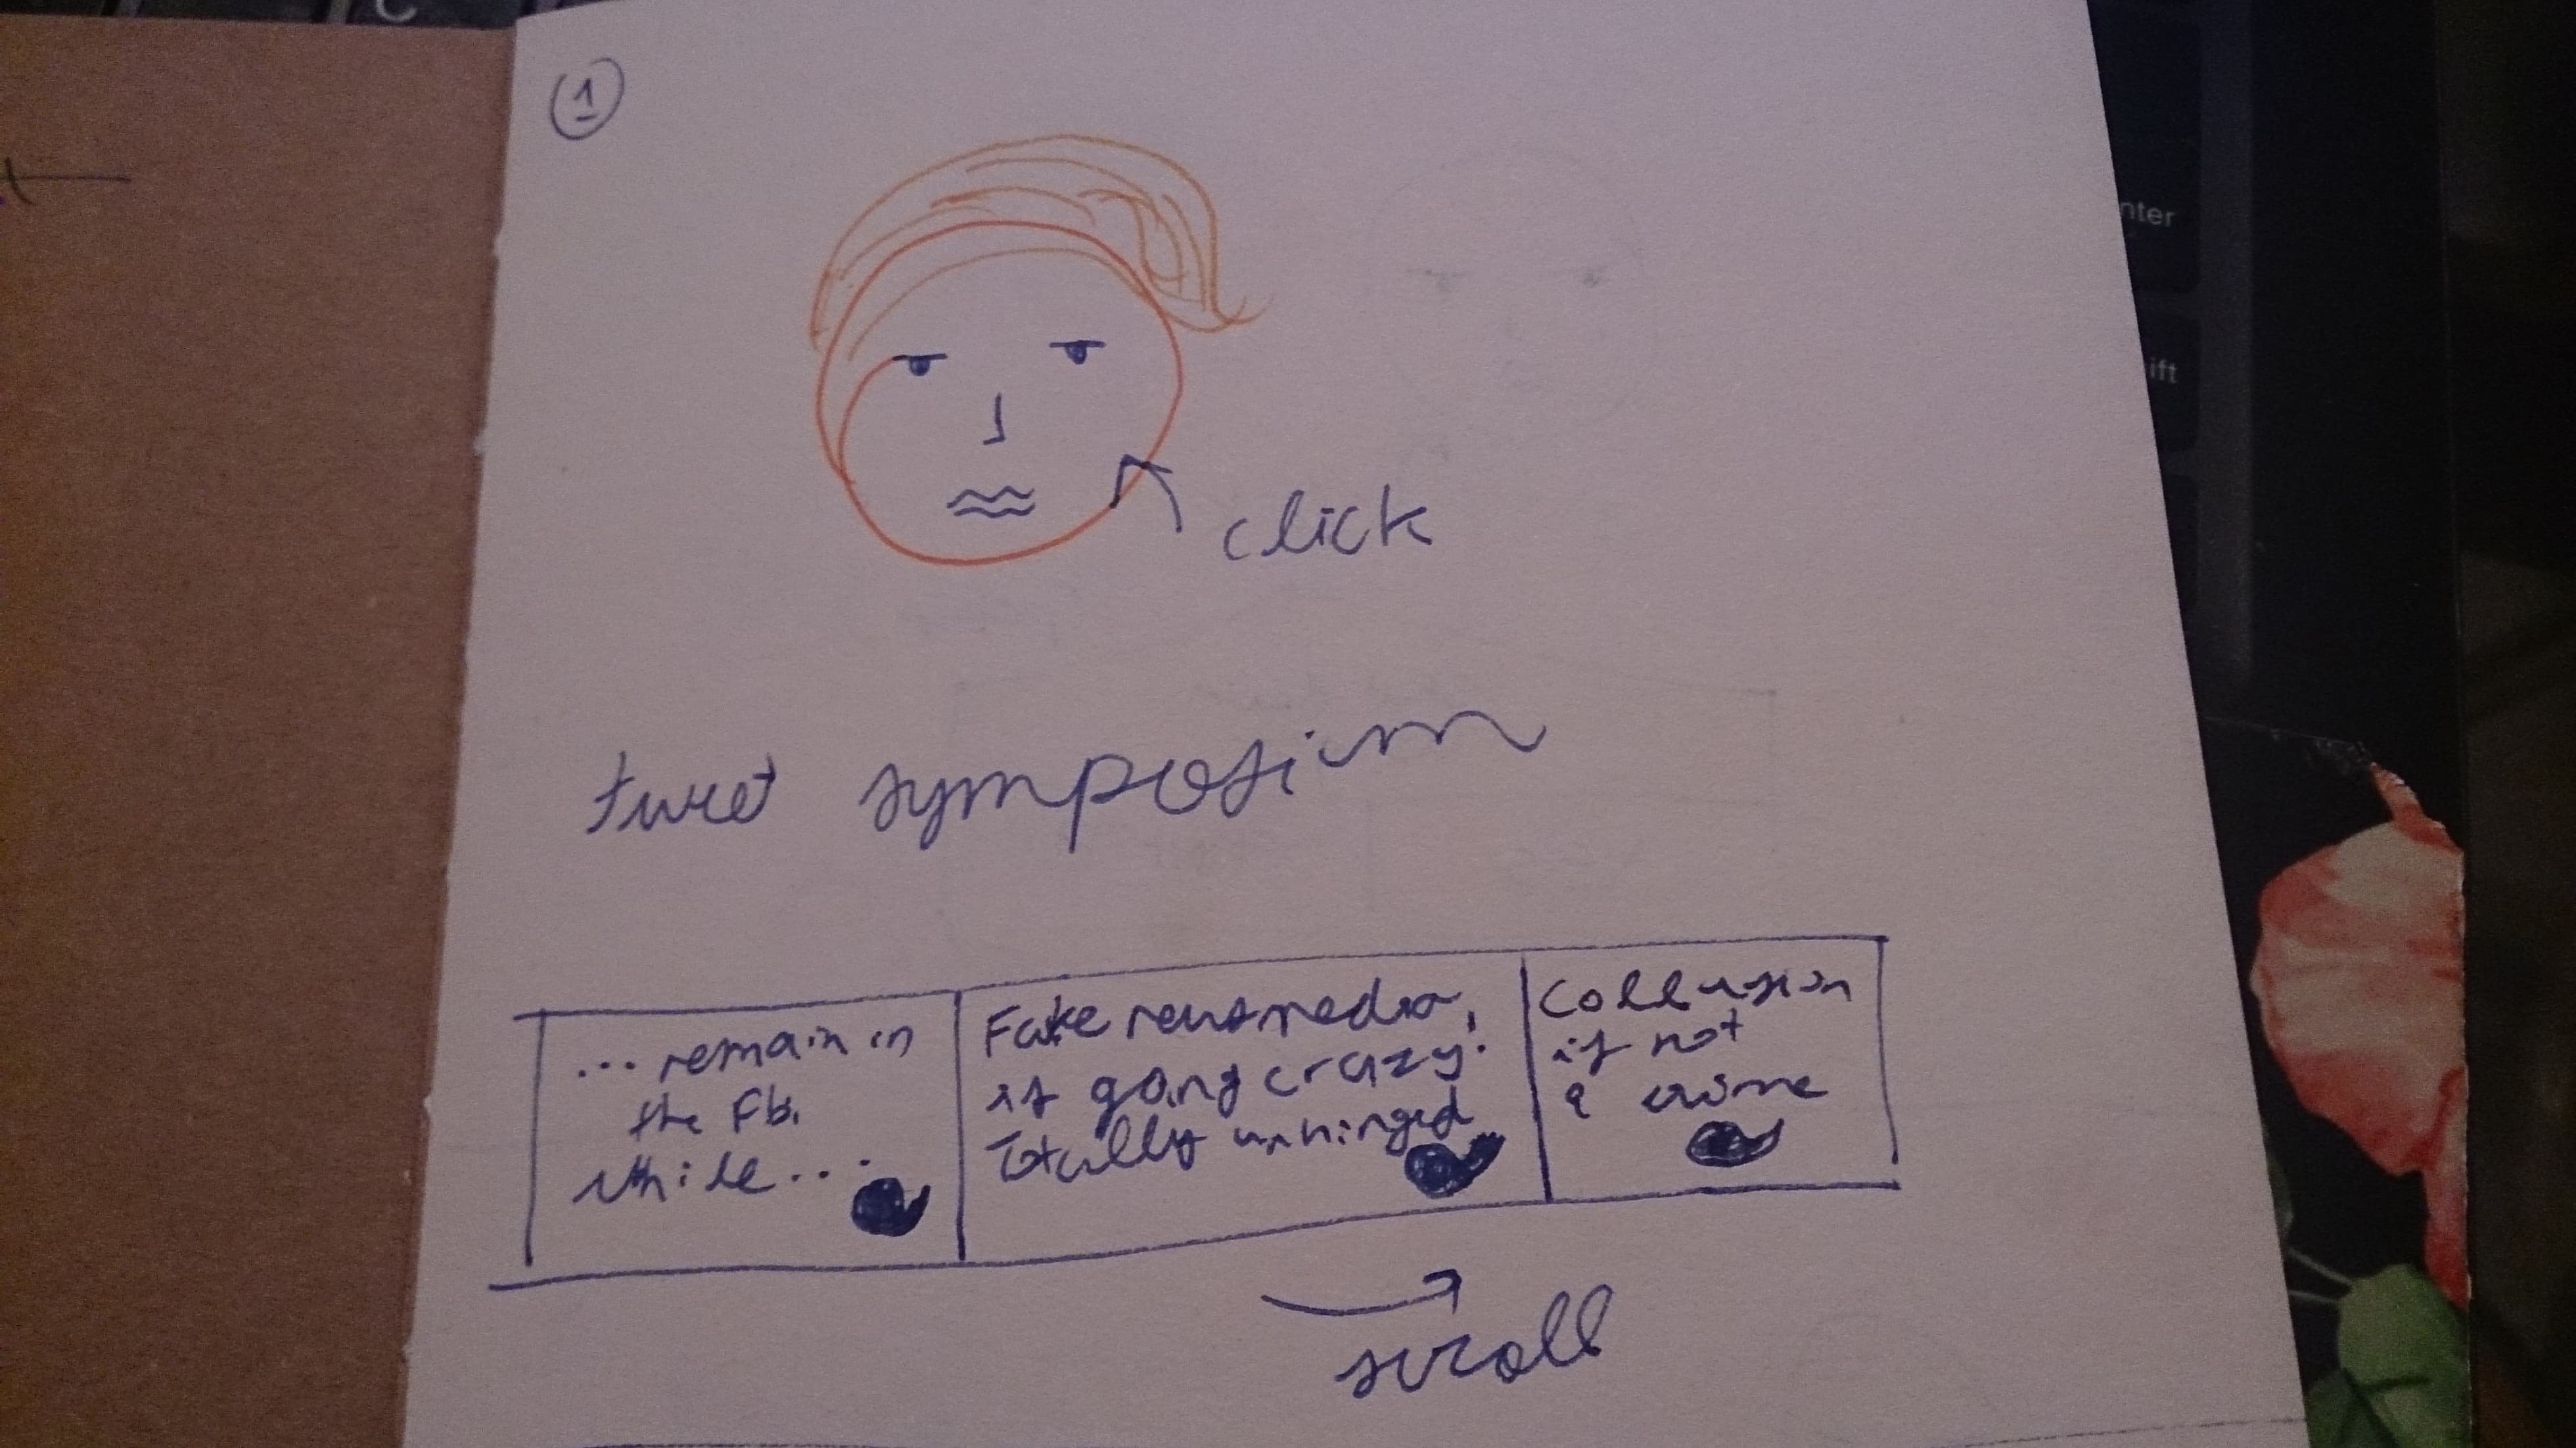 1
click
twet symposium
... remain in
the Fb.
while ...
Fake newsmedia,
is going crazy!
Totally unhinged
Collusion
is not
a crime
scroll
nter
ift